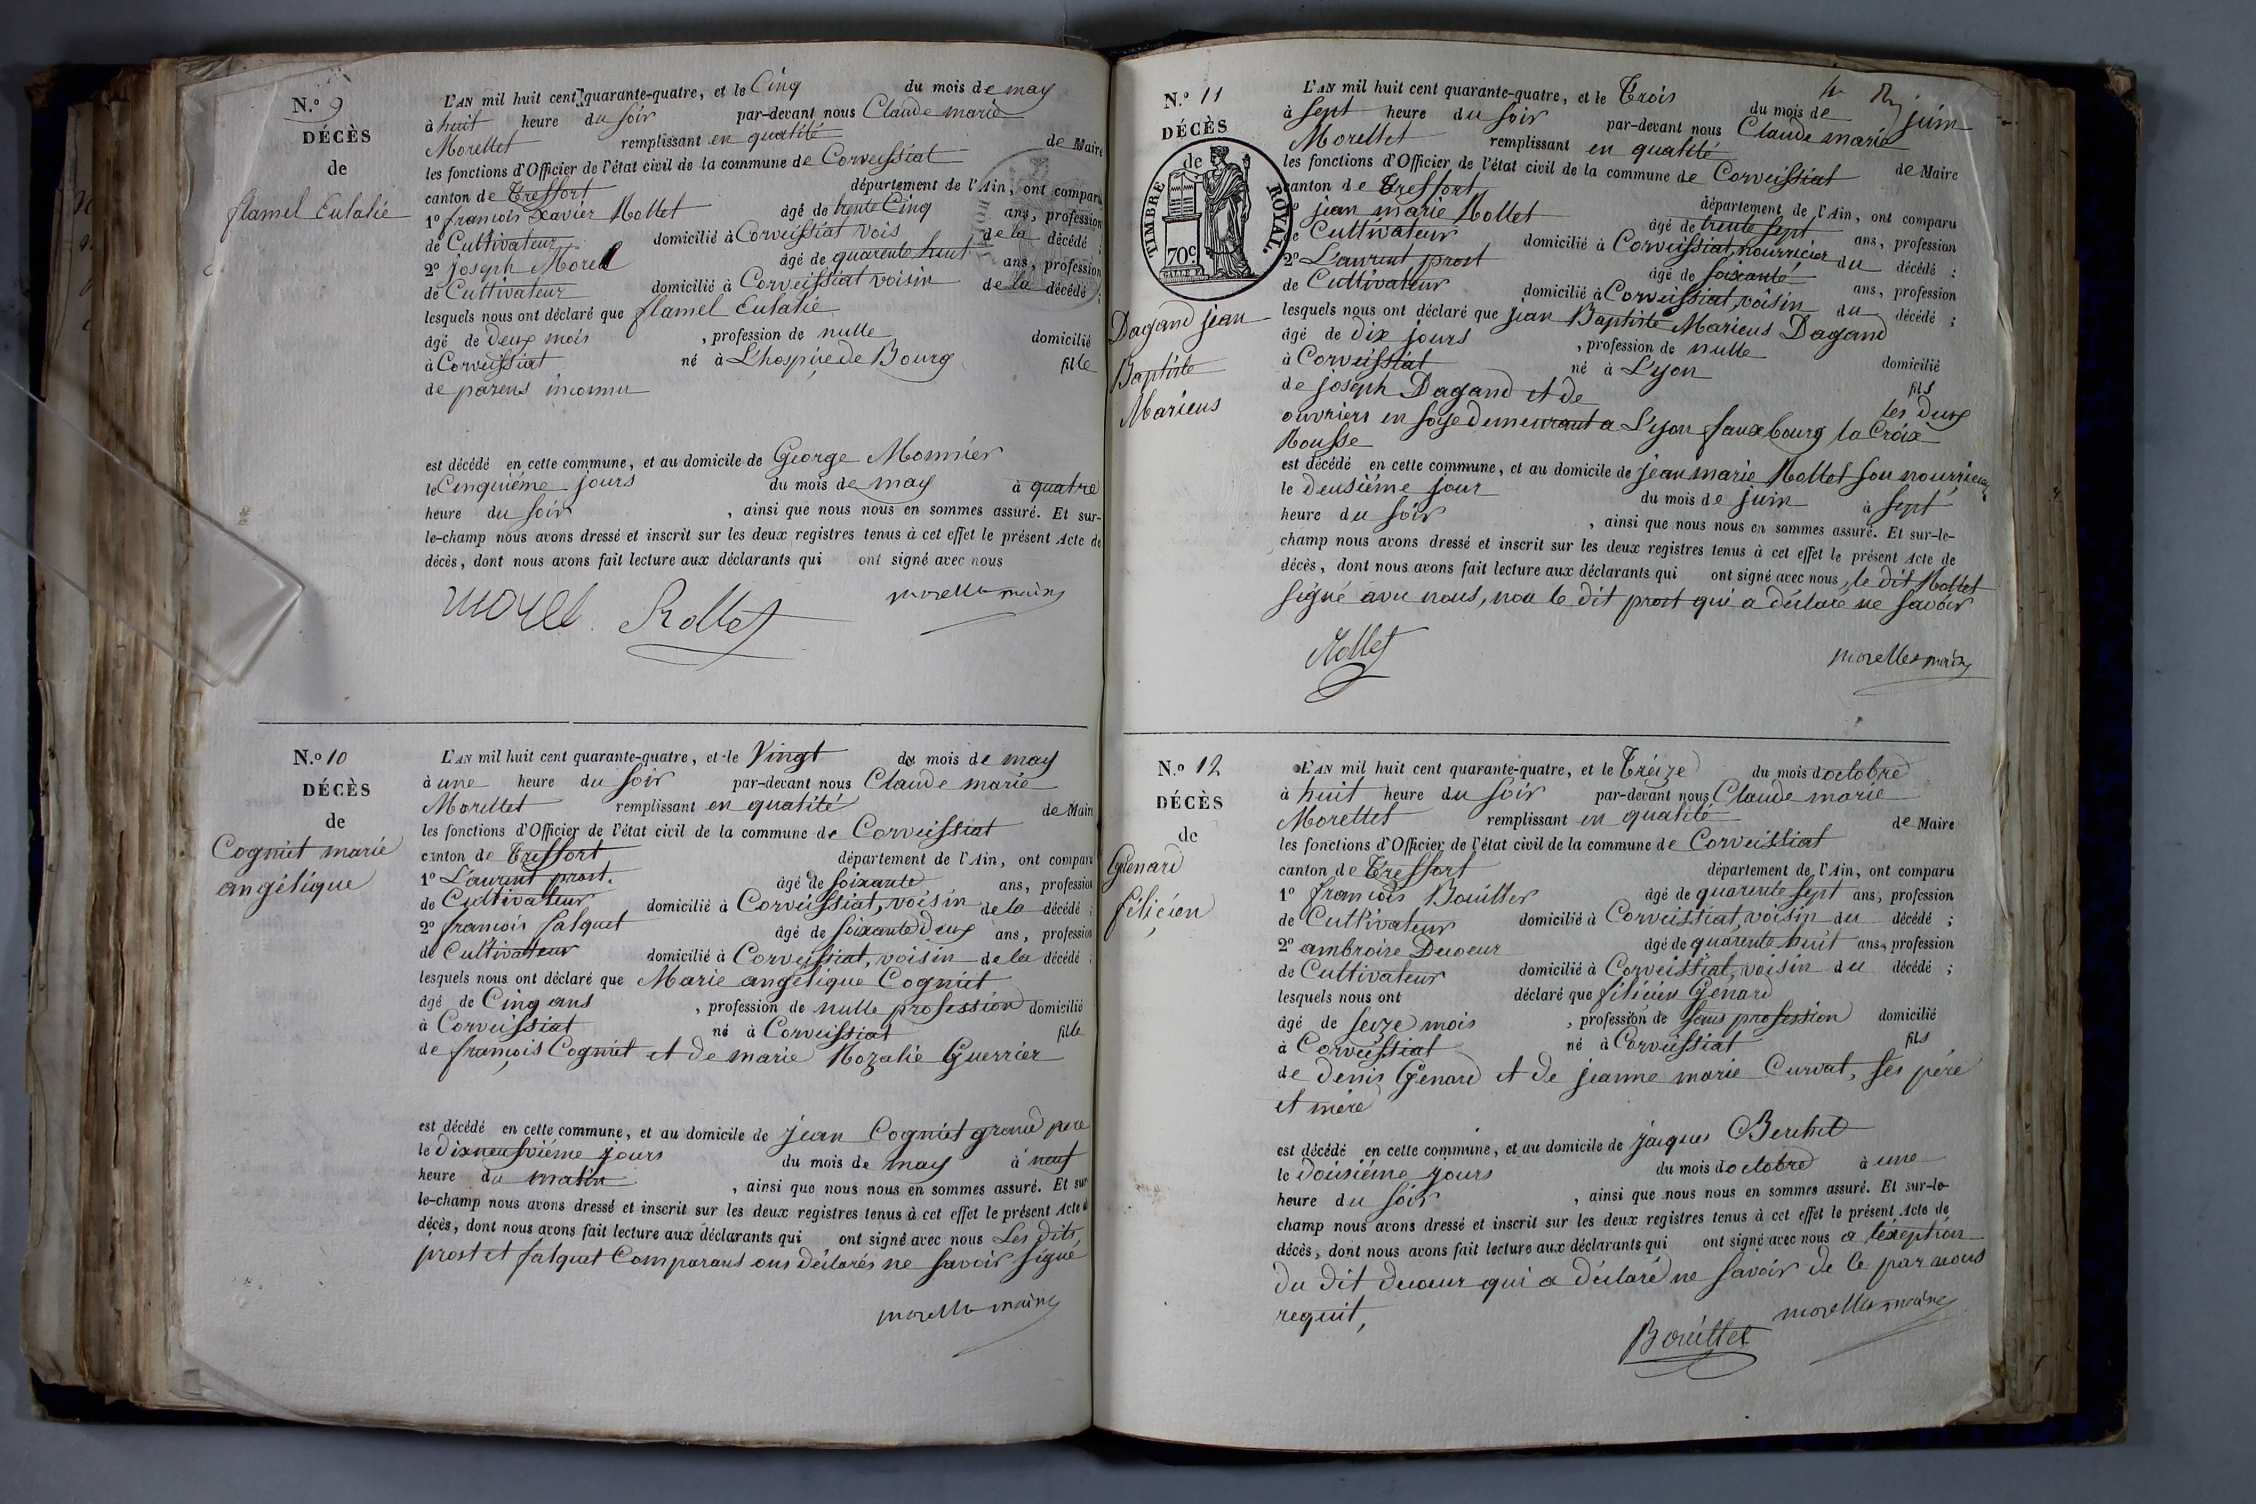 N.o 9
DÉCÈS
de
flamel Eulalie
L'AN mil huit cent quarante-quatre, et le Cinq du mois de may
à huit heure du soir par-devant nous Claude marie
Morellet remplissant en qualité de Maire
les fonctions d'Officier de l'état civil de la commune de Corveissiat
canton de Treffort département de l'Ain, ont comparu
1o francois Xavier Rollet âgé de trente Cinq ans, profession
de Cultivateur domicilié à Corveissiat vois de la décédé ;
2o joseph Morel âgé de quarente huit ans, profession
de Cultivateur domicilié à Corveissiat voisin de la décédé ;
lesquels nous ont déclaré que flamel Eulalie
âgé de deux mois , profession de nulle domicilié
à Corveissiat né à L'hospice de Bourg fille
de parens inconnu
est décédé en cette commune, et au domicile de George Monnier
le Cinquiéme jours du mois de may à quatre
heure du soir , ainsi que nous nous en sommes assuré. Et sur-
le-champ nous avons dressé et inscrit sur les deux registres tenus à cet effet le présent Acte de
décès, dont nous avons fait lecture aux déclarants qui ont signé avec nous
morel Rollet morellet maire
N.o 10
DÉCÈS
de
Cogniet marie
angélique
L'AN mil huit cent quarante-quatre, et le Vingt du mois de may
à une heure du soir par-devant nous Claude marie
Morellet remplissant en qualité de Maire
les fonctions d'Officier de l'état civil de la commune de Corveissiat
canton de Treffort département de l'Ain, ont comparu
1o Laurent prost. âgé de soixante ans, profession
de Cultivateur domicilié à Corveissiat, voisin de la décédé ;
2o francois falquet âgé de soixante deux ans, profession
de Cultivateur domicilié à Corveissiat, voisin de la décédé ;
lesquels nous ont déclaré que Marie angélique Cogniet
âgé de Cinq ans , profession de nulle profession domicilié
à Corveissiat né à Corveissiat fille
de françois Cogniet et de marie Rozalie Guerrier
est décédé en cette commune, et au domicile de jean Cogniet grand pere
le dixneufviéme jours du mois de may à neuf
heure du matin , ainsi que nous nous en sommes assuré. Et sur
le-champ nous avons dressé et inscrit sur les deux registres tenus à cet effet le présent Acte de
décès, dont nous avons fait lecture aux déclarants qui ont signé avec nous Les dits,
prost et falquet Comparans ons déclarés ne savoir signe
morellet maire
N.o 11
DÉCÈS
de
TIMBRE ROYAL
70c.
Dagand jean
Baptiste
Marieus
L'AN mil huit cent quarante-quatre, et le Trois du mois de juin
à sept heure du soir par-devant nous Claude marie
Morellet remplissant en qualité de Maire
les fonctions d'Officier de l'état civil de la commune de Corveissiat
canton de Treffort département de l'Ain, ont comparu
jean marie Rollet âgé de trente sept ans, profession
de Cultivateur domicilié à Corveissiat, nourricier du décédé ;
2o Laurent prost âgé de soixante ans, profession
de Cultivateur domicilié à Corveissiat, voisin du décédé ;
lesquels nous ont déclaré que jean Baptiste Marieus Dagand
âgé de dix jours , profession de nulle domicilié
à Corveissiat né à Lyon fils
de joseph Dagand et de les deux
ouvriers en soye demeurant a Lyon fauxbourg la Croix
Rousse
est décédé en cette commune, et au domicile de jean marie Rollet son nourricier
le deusiéme jour du mois de juin à sept
heure du soir , ainsi que nous nous en sommes assuré. Et sur-le-
champ nous avons dressé et inscrit sur les deux registres tenus à cet effet le présent Acte de
décès, dont nous avons fait lecture aux déclarants qui ont signé avec nous, le dit Rollet
signé avec nous, non le dit prost qui a déclaré ne savoir
Rollet morellet maire
N.o 12
DÉCÈS
de
Génard
félicien
L'AN mil huit cent quarante-quatre, et le Tréize du mois doctobre
à huit heure du soir par-devant nous Claude marie
Morellet remplissant en qualité de Maire
les fonctions d'Officier de l'état civil de la commune de Corveissiat
canton de Treffort département de l'Ain, ont comparu
1o francois Bouillet âgé de quarente sept ans, profession
de Cultivateur domicilié à Corveissiat, voisin du décédé ;
2o ambroise Ducoeur âgé de quarente huit ans, profession
de Cultivateur domicilié à Corveissiat, voisin du décédé ;
lesquels nous ont déclaré que félicien Génard
âgé de seize mois , profession de sans profession domicilié
à Corveissiat né à Corveissiat fils
de denis Génard et de jeanne marie Curvat, ses pére
et mére
est décédé en cette commune, et au domicile de jacques Berthet
le douisiéme jours du mois doctobre à une
heure du soir , ainsi que nous nous en sommes assuré. Et sur-le-
champ nous avons dressé et inscrit sur les deux registres tenus à cet effet le présent Acte de
décès, dont nous avons fait lecture aux déclarants qui ont signé avec nous a léxéption
du dit ducoeur qui a déclaré ne savoir de ce par nous
requit,
Bouillet morellet maire